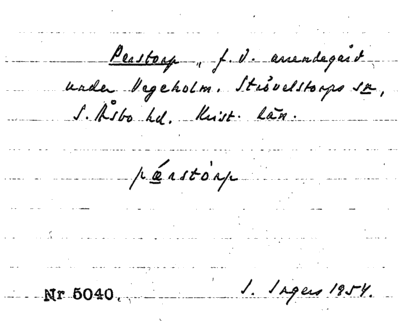 Perstorp, f.d. arrendegård
under Vegeholm. Strövelstorps sn,
S. Åsbo hd. Krist. län.
pæ̀rstȯrp
Nr 5040. I. Ingers 1954.